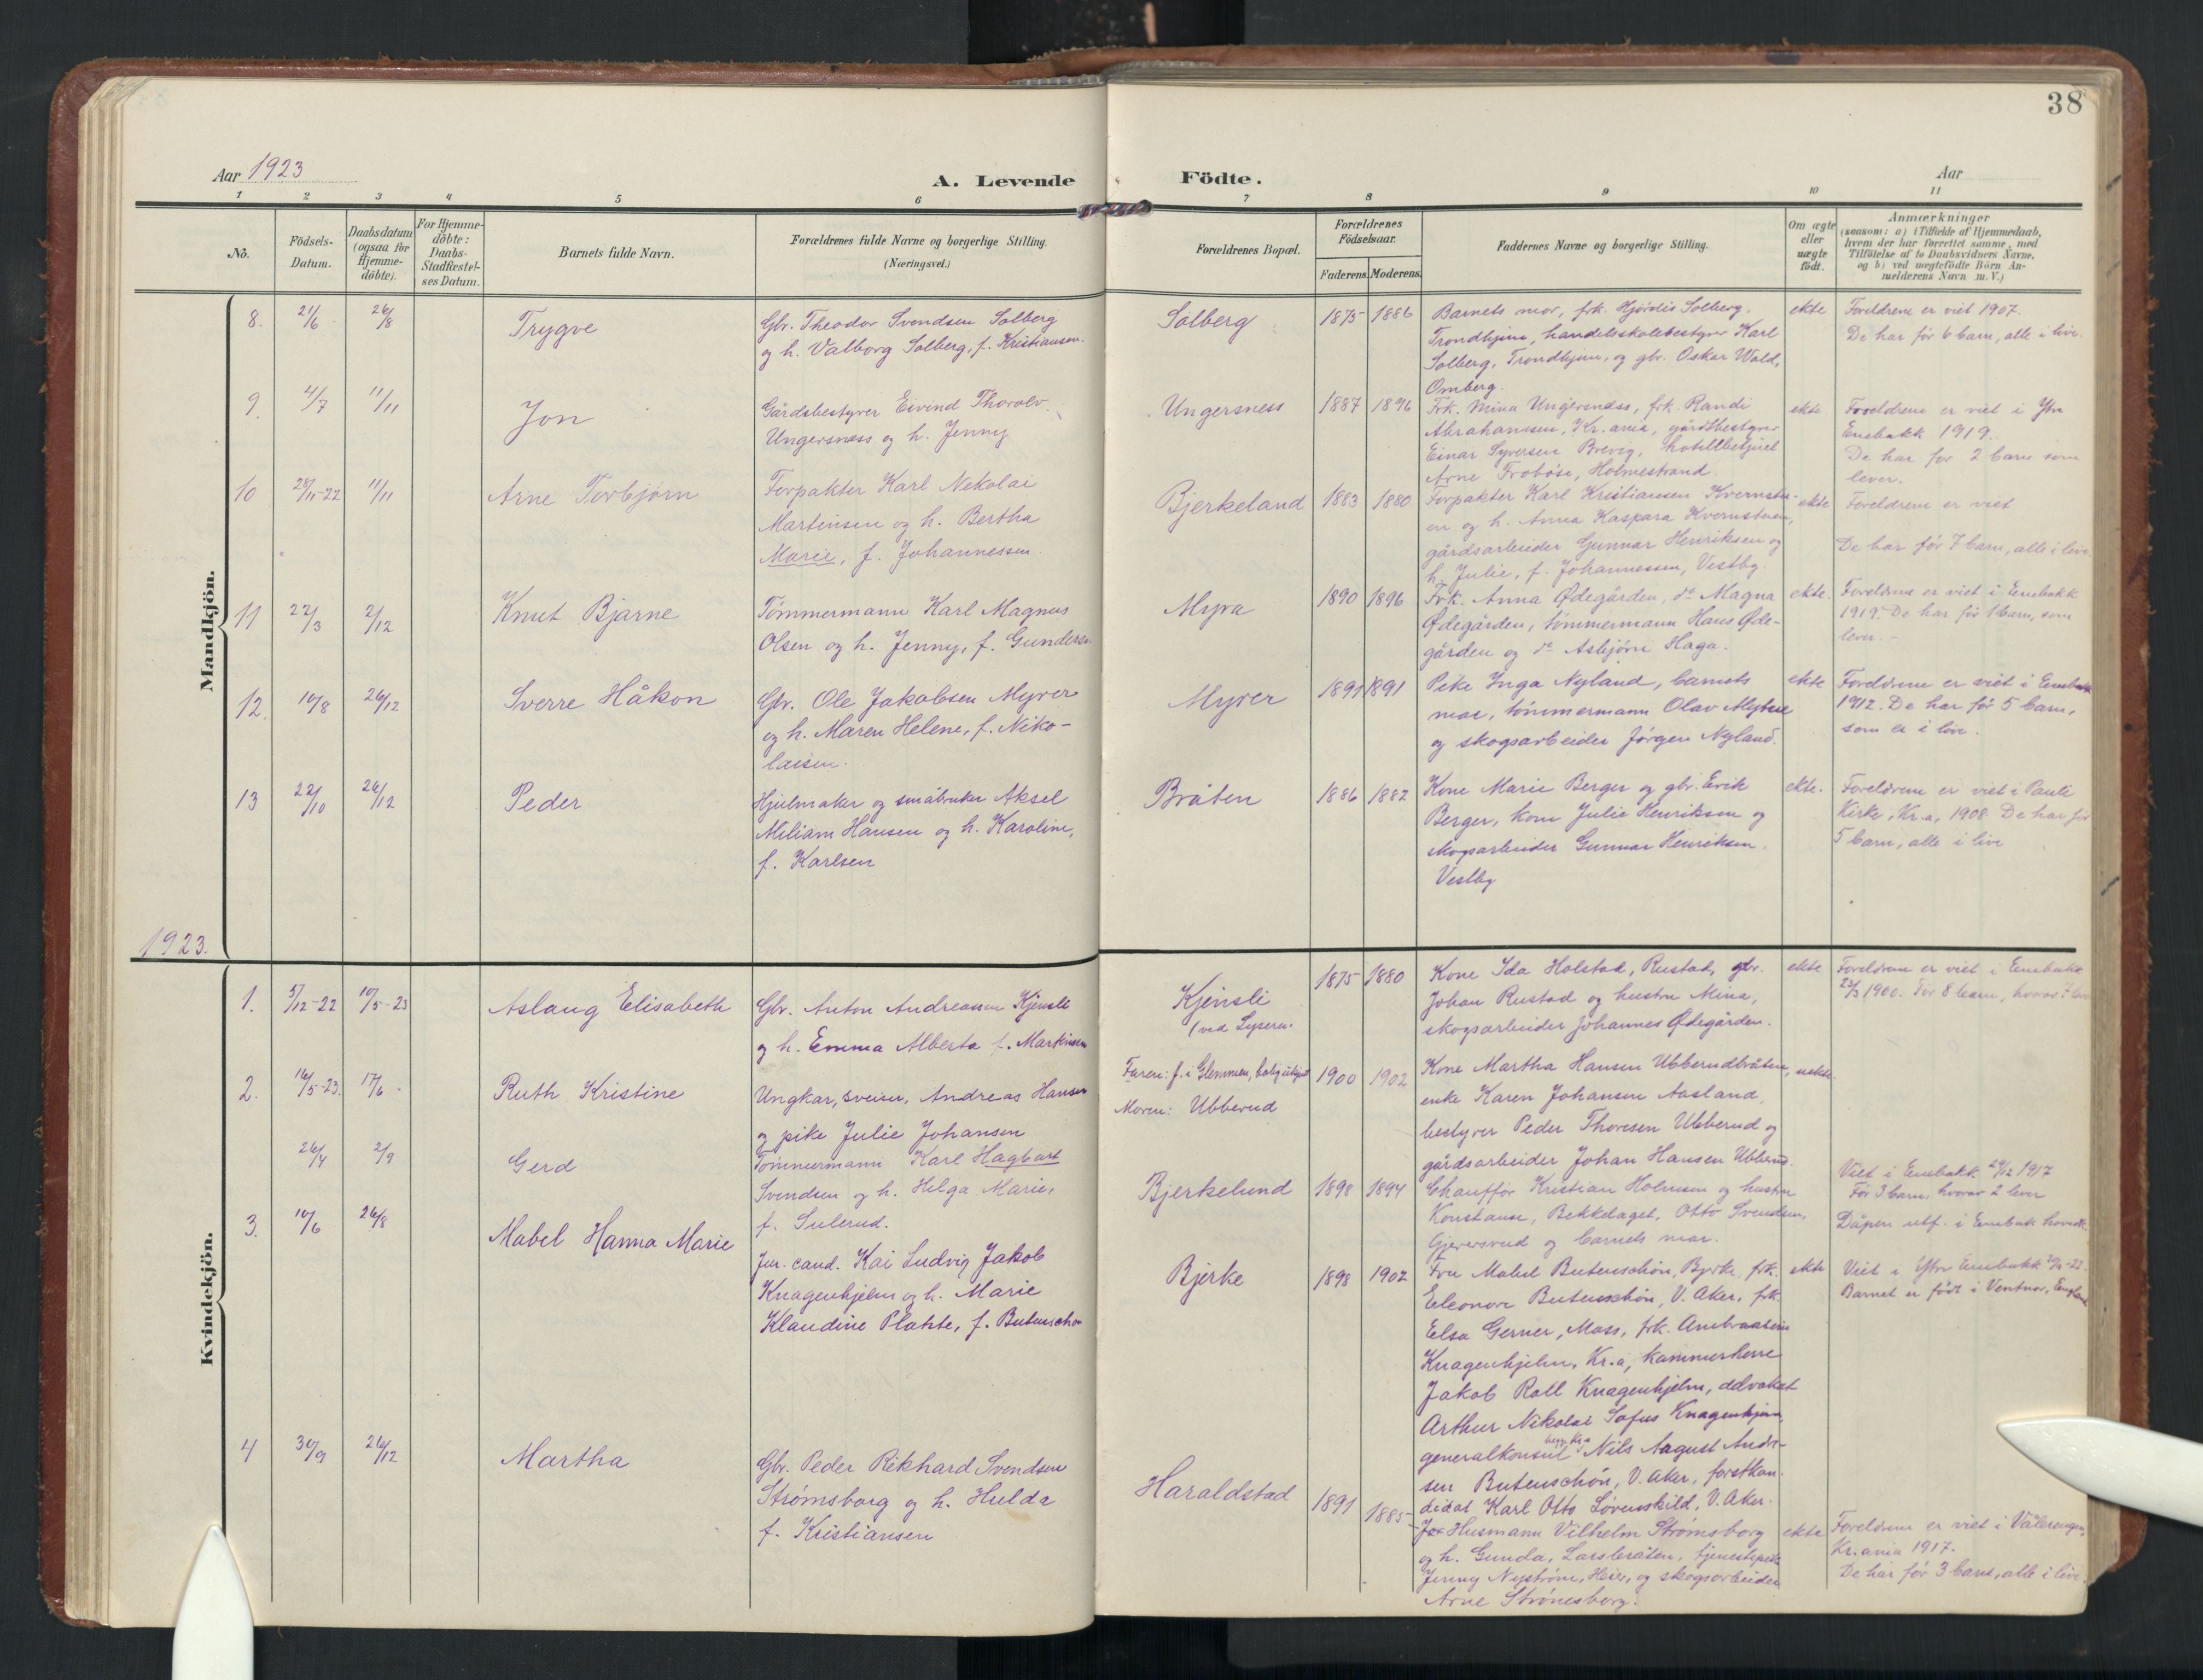 38
Aar 1923
A. Levende
Födte.
Aar
1 2 3 4 5 6 7 8 9 10 11
No.
Födsels-
Datum.
Daabsdatum
(ogsaa for
Hjemme-
döbte).
For Hjemme-
döbte:
Daabs-
Stadfæstel-
ses Datum.
Barnets fulde Navn.
Forældrenes fulde Navne og borgerlige Stilling.
(Næringsvei.)
Forældrenes Bopæl.
Forældrenes
Födselsaar.
Faderens. Moderens.
Faddernes Navne og borgerlige Stilling.
Om ægte
eller
uægte
födt.
Anmærkninger
(saasom: a) i Tilfælde af Hjemmedaab,
hvem der har forrettet samme, med
Tilföielse af to Daabsvidners Navne.
og b) ved uægtefödte Börn An-
melderens Navn m. V.)
Mandkjön.
8. 21/6 26/8
Trygve
Gbr. Theodor Svendsen Solberg
og h. Valborg Solberg, f. Kristiansen.
Solberg
1875 1886
Barnets mor, frk. Hjördis Solberg,
Trondhjem, handelsskolebestyrer Karl
Solberg, Trondhjem, og gbr. Oskar Wold,
Omberg.
ekte
Foreldrene er viet 1907.
De har før 6 barn, alle i live.
9. 4/7 11/11
Jon
Gårdsbestyrer Eivind Thorolv
Ungersness og h. Jenny
Ungersness
1887 1896
Frk. Mina Ungersness, frk. Randi
Abrahamsen, Kr.ania, gårdsbestyrer
Einar Syversen Brevig, hotellbetjent
Arne Froböse, Holmestrand.
ekte
Foreldrene er viet i Ytre
Enebakk 1919.
De har før 2 barn som
lever.
10 28/11-22 11/11
Arne Torbjørn
Forpakter Karl Nekolai
Martinsen og h. Bertha
Marie, f. Johannessen.
Bjerkeland
1883 1880
Forpakter Karl Kristiansen Kvernstu-
en og h. Anna Kaspara Kvernstuen,
gårdsarbeider Gunnar Henriksen og
h. Julie, f. Johannessen, Vestby.
ekte
Foreldrene er viet
De har før 7 barn, alle i live.
11 22/3 2/12
Knut Bjarne
Tömmermann Karl Magnus
Olsen og h. Jenny, f. Gundersen
Myra
1890 1896
Frk. Anna Ødegården, do Magna
Ødegården, tömmermann Hans Øde-
gården og do Asbjörn Haga.
ekte.
Foreldrene er viet i Enebakk
1919. De har før 1 barn, som
lever. -
12. 10/8 26/12
Sverre Håkon
Gbr. Ole Jakobsen Myrer
og h. Maren Helene, f. Niko-
laisen.
Myrer
1891 1891
Pike Inga Nyland, barnets
mor, tömmermann Olav
og skogsarbeider Jörgen Nyland.
ekte
Foreldrene er viet i Enebakk
1912. De har før 5 barn,
som er i live.
13 22/10 26/12
Peder
Hjulmaker og småbruker Aksel
Miliam Hansen og h. Karoline,
f. Karlsen
Bråten
1886 1882
Kone Marie Berger og gbr. Erik
Berger, kone Julie Henriksen og
skogsarbeider Gunnar Henriksen.
Vestby
ekte.
Foreldrene er viet i Pauli
Kirke, Kr.a, 1908. De har før
5 barn, alle i live
1923.
Kvindekjön.
1. 5/12-22 10/5-23
Aslaug Elisabeth
Gbr. Anton Andreassen Kjensli
og h. Emma Alberta f. Martinsen
Kjensli
(ved Lyseren.
1875 1880
Kone Ida Holstad, Rustad, gbr.
Johan Rustad og hustru Mina,
skogsarbeider Johannes Ødegården.
ekte
Foreldrene er viet i Enebakk
23/3 1900. Før 8 barn, hvorav 7 lever
2. 16/5-23. 17/6
Ruth Kristine
Ungkar, sveiser, Andreas Hansen
og pike Julie Johansen
Faren: f. i Glemmen,
Moren: Ubberud
1900 1902
Kone Martha Hansen Ubberudbråten,
enke Karen Johansen Aasland,
bestyrer Peder Thoresen Ubberud og
gårdsarbeider Johan Hansen Ubberud.
uekte.
26/4 2/9
Gerd
Tömmermann Karl Hagbart
Svendsen og h. Helga Marie,
f. Sulerud.
Bjerkelund
1898 1894
Chaufför Kristian Holmsen og hustru
Konstanse, Bekkelaget, Otto Svendsen,
Gjerersrud og barnets mor.
Viet i Enebakk 29/12 1917
Før 3 barn, hvorav 2 lever
Dåpen utf. i Enebakk hovedk.
3. 10/6 26/8
Mabel Hanna Marie
Jur. cand. Kai Ludvig Jakob
Knagenhjelm og h. Marie
Klaudine Plahte, f. Butenschøn
Bjerke
1898 1902
Fru Mabel Butenschön, Bjerke, frk.
Eleonore Butenschön, V. Aker, frk.
Elsa Gerner, Moss, frk.
Knagenhjelm, Kr.a, kammerherre
Jakob Roll Knagenhjelm, advokat
Arthur Nikolai Sofus Knagenhjelm,
begge Kr.a
generalkonsul Nils August Andre-
sen Butenschön, V. Aker, forstkan-
didat Karl Otto Løvenskiold, V. Aker.
ekte
Viet i Ytre Enebakk
Barnet er født i Ventnor, England
4 30/9 26/12
Martha
Gbr. Peder Rikhard Svendsen
Strømsborg og h. Hulda
f. Kristiansen
Haraldstad
1891 1885
Husmann Vilhelm Strømsborg
og h. Gunda, Larsbråten, tjenestepike
Jenny Nyström, Heier, og skogsarbeider
Arne Strömsborg.
ekte
Foreldrene er viet i Vålerengen,
Kr.ania 1917.
De har før 3 barn, alle i live.